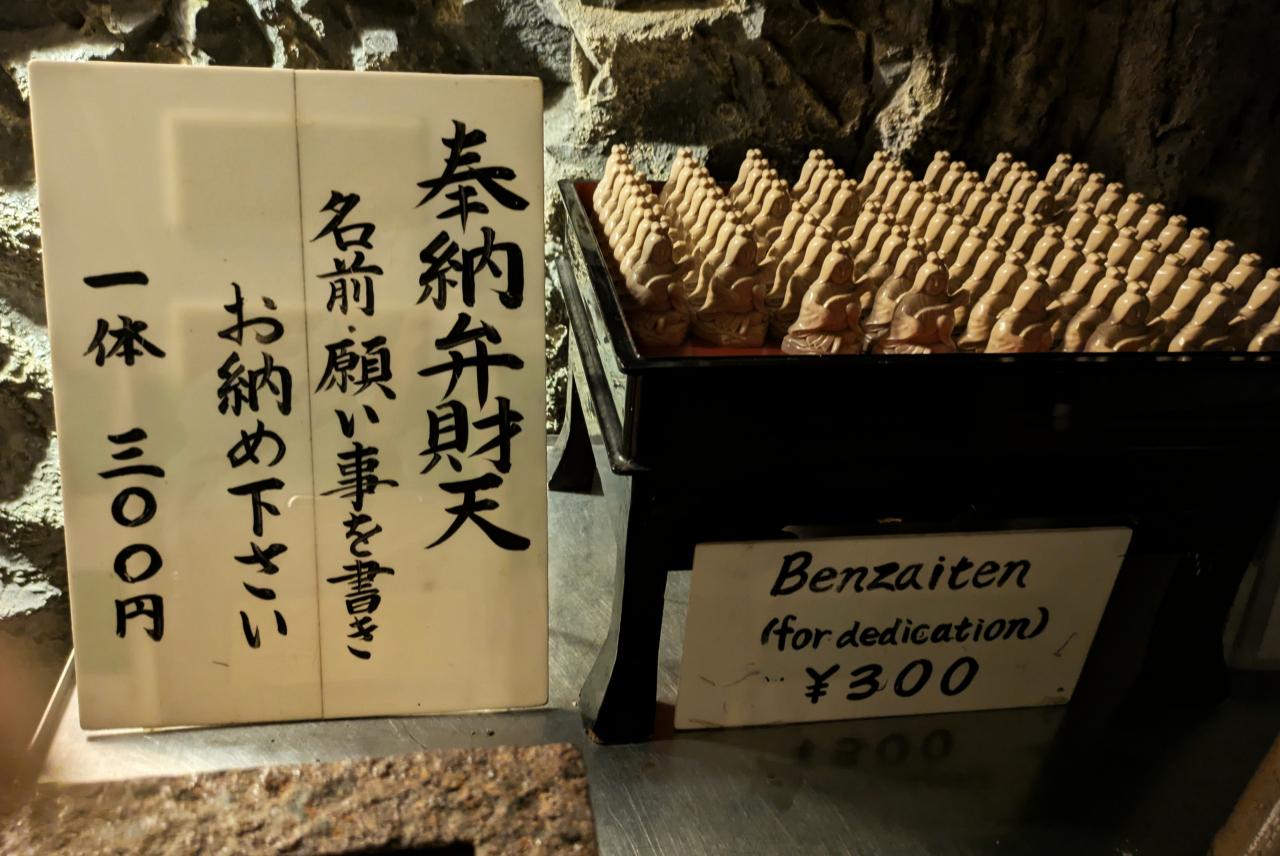 奉納弁財天
名前・願い事を書き
お納め下さい
一体 三〇〇円
Benzaiten
(for dedication)
¥300